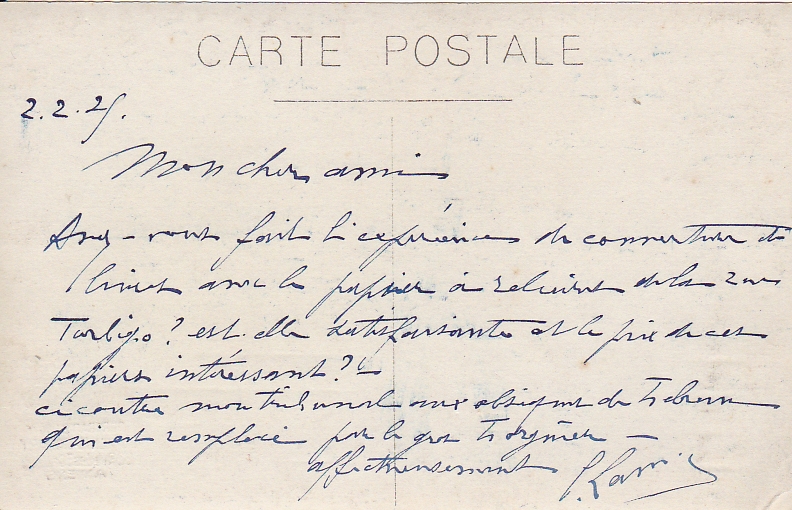 CARTE POSTALE
2.2.25.
Mon cher ami
Avez-vous fait l'expérience de couverture de
livres avec le papier à relieurs de la rue
Turbigo? est-elle satisfaisante et le prix de ces
papiers intéressant?
ci contre mon tribunal aux obsèques de
qui est remplacé par le gros
affectueusement